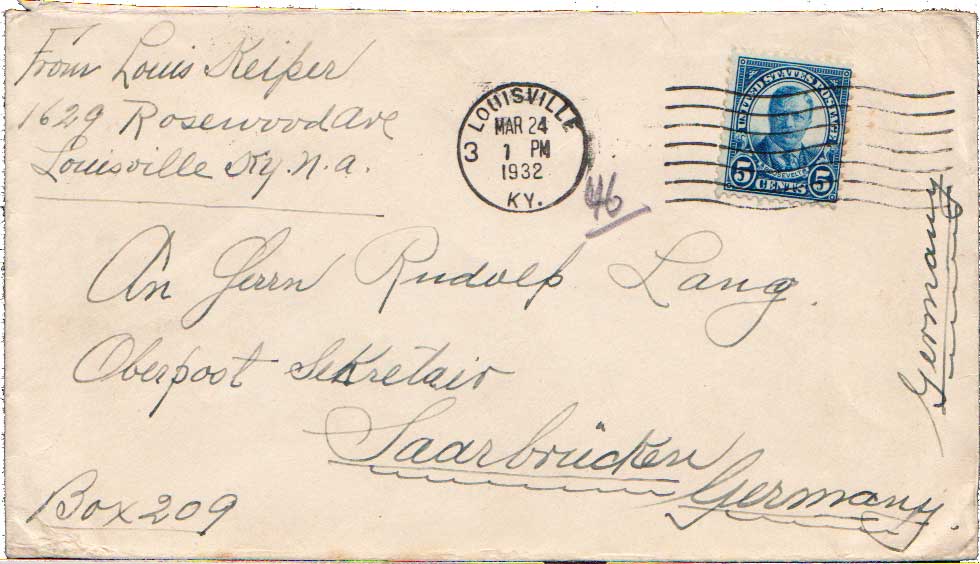 From Louis Keiper
1629 Rosewood Ave
Louisville Ky. N.a.
LOUISVILLE
MAR 24
3 1 PM
1932
KY.
46
UNITED STATES POSTAGE
ROOSEVELT
5 CENTS 5
An Herrn Rudolf Lang.
Oberpost Sekretair
Saarbrücken
Germany.
Box 209
Germany